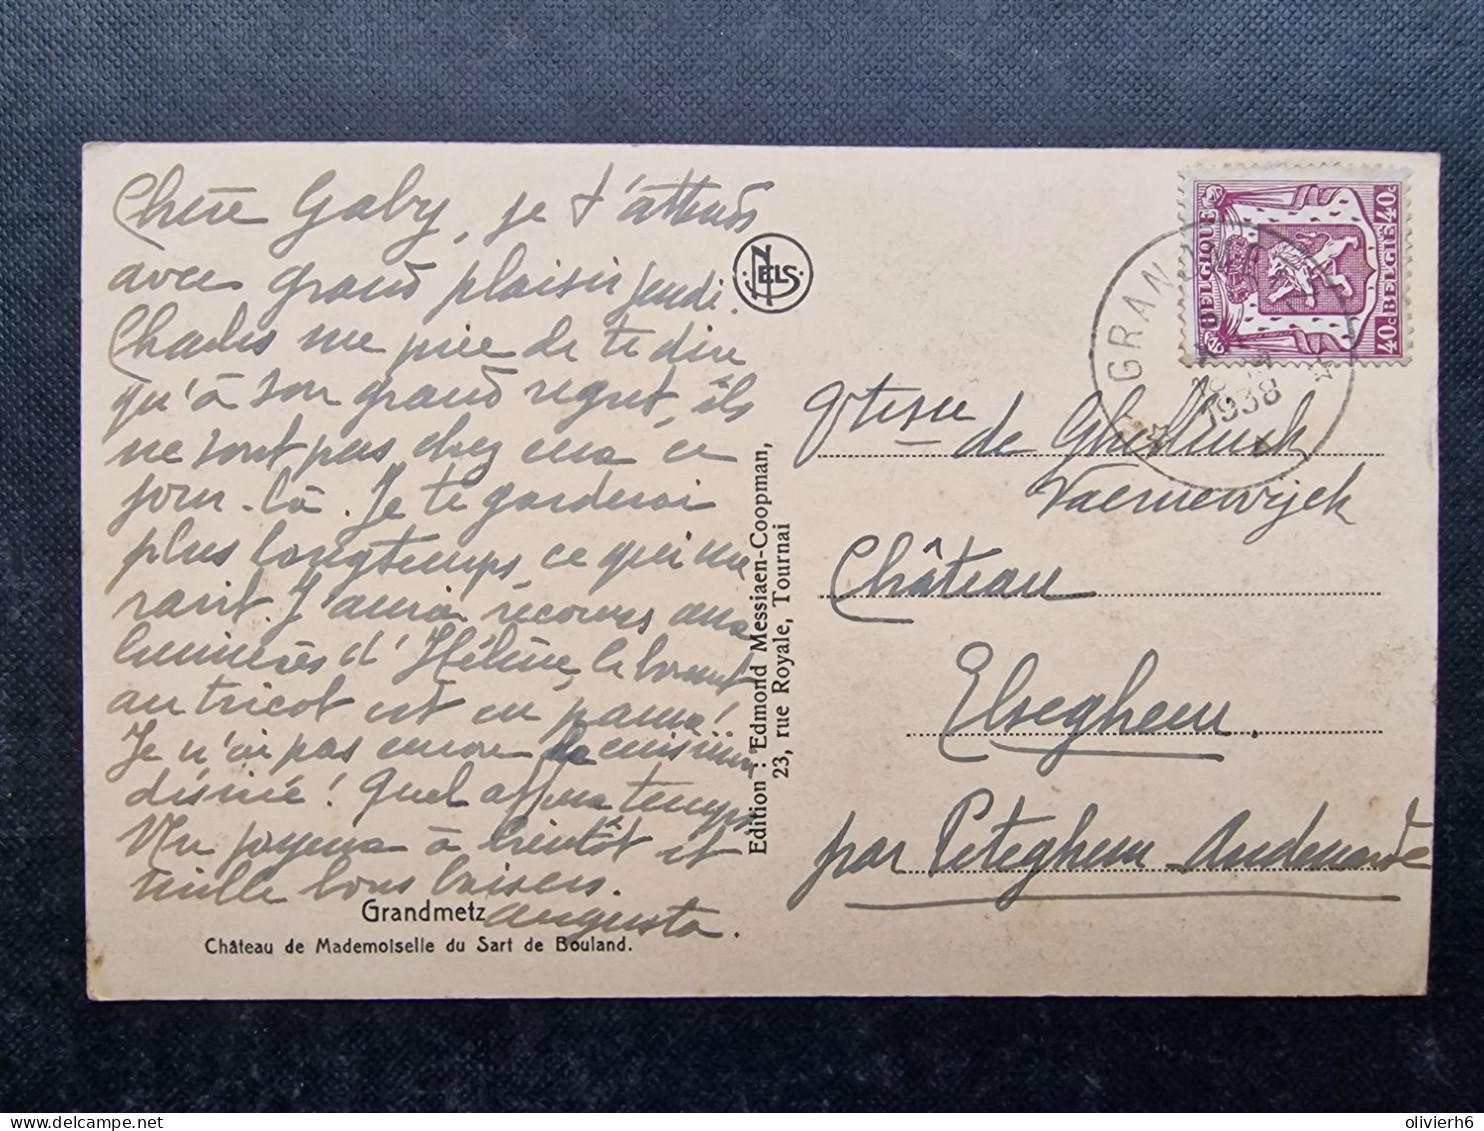 Chère Gaby, je t'attends
avec grand plaisir jeudi.
Charles me prie de te dire
qu'à son grand regret, ils
ne sont pas chez eux ce
jour-là. Je te garderai
plus longtemps, ce qui me
ravit. J'aurai recours aux
lumières d'Hélène, le
au tricot est en panne!
Je n'ai pas encore la cuisinière
désirée! Quel affreux temps
Un joyeux à bientôt et
mille bons baisers.
Augusta.
Grandmetz
Château de Mademoiselle du Sart de Bouland.
NELS
Edition : Edmond Messiaen-Coopman,
23, rue Royale, Tournai
BELGIQUE
40c BELGIË 40c
GRAN
1938
de Ghellinck
Vaernewijck
Château
Elseghem.
par Peteghem-Audenarde
olivierh6